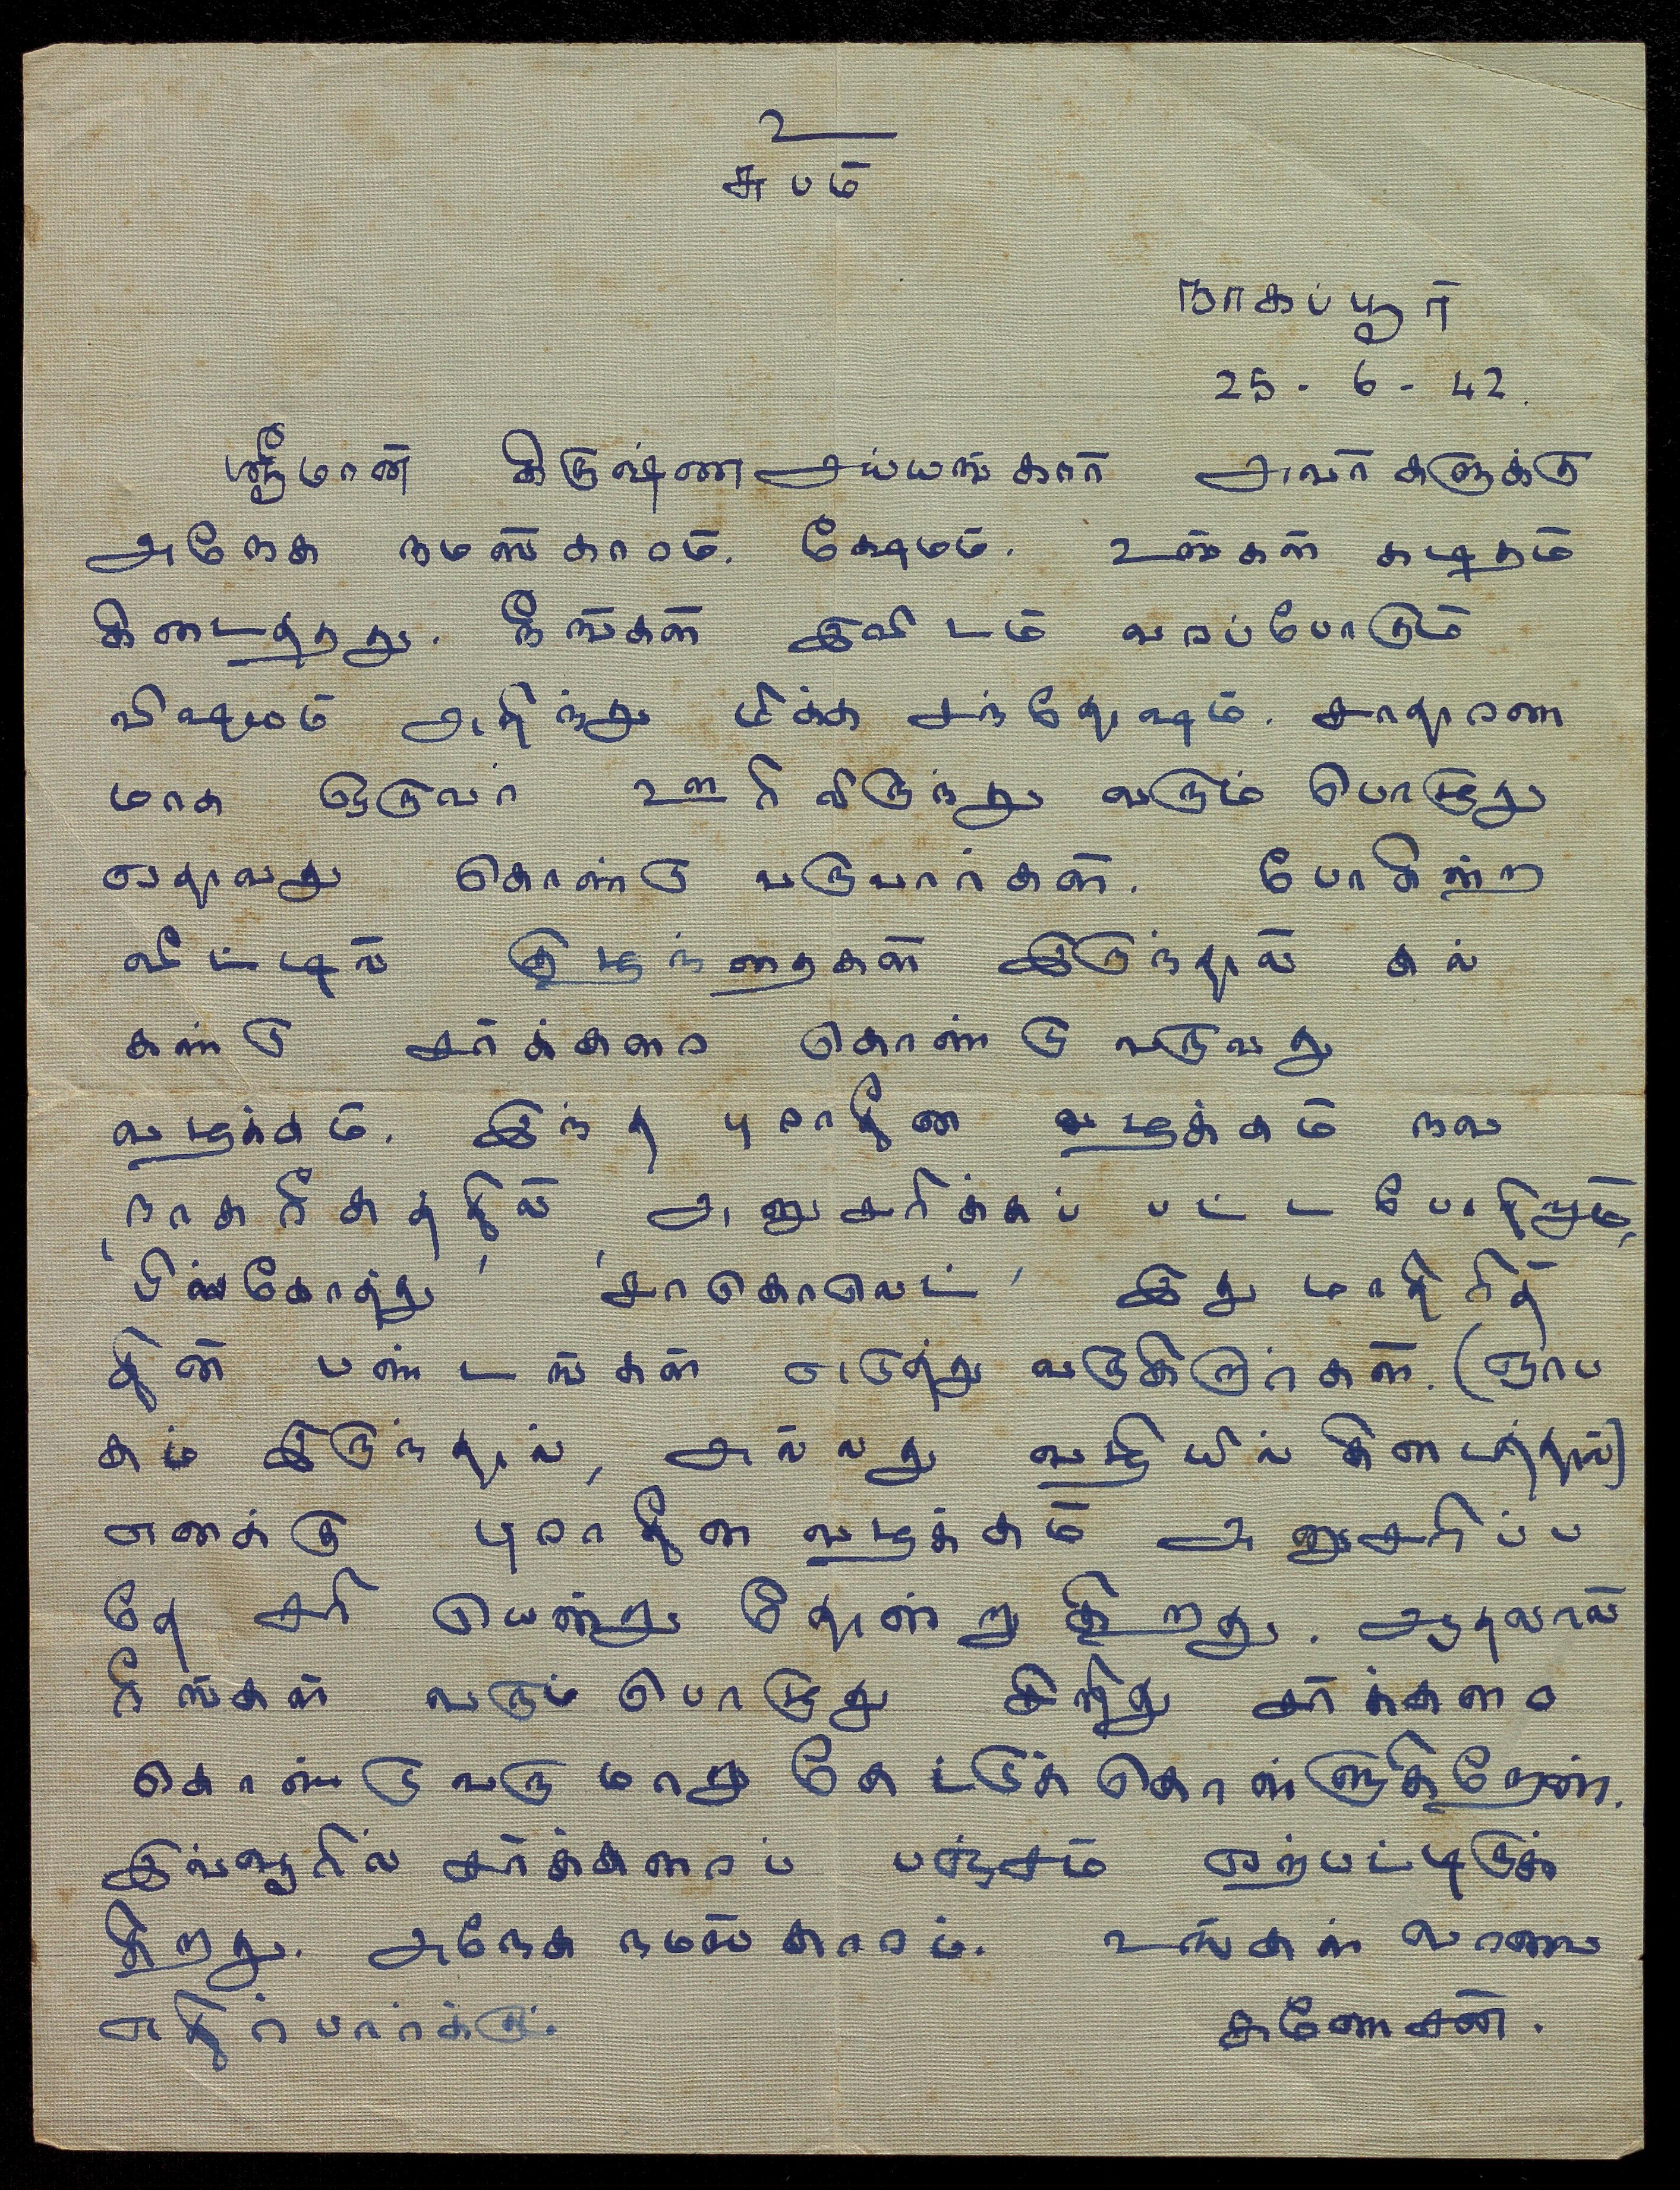 உ
சுபம்
நாகப்பூர்
25 - 6 - 42.
ஸ்ரீமான் கிருஷ்ண அய்யங்கார் அவர்களுக்கு
அநேக நமஸ்காரம். க்ஷேமம். உங்கள் கடிதம்
கிடைத்தது. நீங்கள் இவிடம் வரப்போகும்
விஷயம் அறிந்து மிக்க சந்தோஷம். சாதாரண
மாக ஒருவர் ஊரிலிருந்து வரும் பொழுது
ஏதாவது கொண்டு வருவார்கள். போகின்ற
வீட்டில் குழந்தைகள் இருந்தால் கல்
கண்டு சர்க்கரை கொண்டு வருவது
வழக்கம். இந்த புராதீன வழக்கம் நவ
நாகரீகத்தில் அனுசரிக்கப் பட்ட போதிலும்,
'பிஸ்கோத்து' 'சாகொலெட்' இது மாதிரித்
தின் பண்டங்கள் எடுத்து வருகிறார்கள். (ஞாப
கம் இருந்தால், அல்லது வழியில் கிடைத்தால்)
எனக்கு புராதீன வழக்கம் அனுசரிப்ப
தே சரி யென்று தோன்றுகிறது. ஆதலால்
நீங்கள் வரும் பொழுது சிறிது சர்க்கரை
கொண்டு வரு மாறு கேட்டுக் கொள்ளுகிறேன்.
இவ்வூரில் சர்க்கரைப் பஞ்சம் ஏற்பட்டிருக்
கிறது. அநேக நமஸ்காரம். உங்கள் வரவை
எதிர்பார்க்கும்.
கணேசன்.